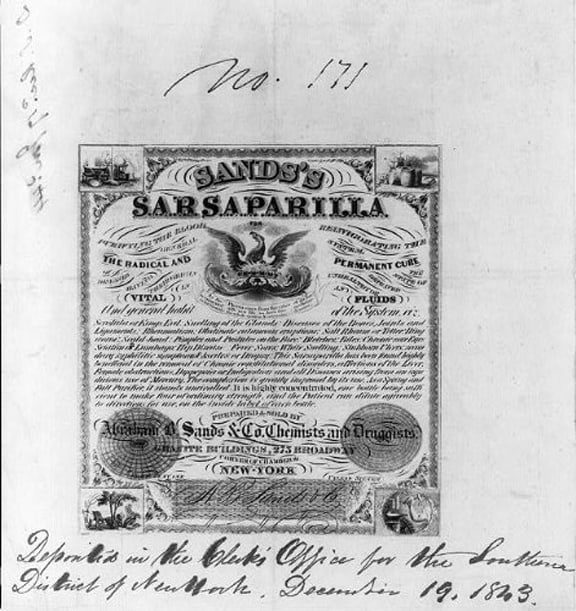 No. 171
SANDS'S
SARSAPARILLA
FOR
PURIFYING THE BLOOD
REINVIGORATING THE
GENERAL
SYSTEM.
THE RADICAL AND
PERMANENT CURE
OF
THE
DISEASES
STATE OF
(VITAL)
(FLUIDS)
And general habit
of the System, viz:
Scrofula or Kings Evil, Swelling of the Glands: Diseases of the Bones, Joints and
Ligaments: Rheumatism: Obstinate cutaneous eruptions: Salt Rheum or Tetter: Ring
worm: Scald head: Pimples and Pustules on the Face: Blotches: Biles, Chronic sore Eyes:
Sciatica & Lumbago: Hip Disease: Fever Sores, White Swelling, Stubborn Ulcers, secon
dary syphilitic symptoms: Ascites or Dropsy: This Sarsaparilla has been found highly
beneficial in the removal of Chronic constitutional disorders, affections of the Liver,
Female obstructions, Dyspepsia or Indigestion and all Diseases arising from an inju
dicious use of Mercury. The complexion is greatly improved by its use. As a Spring and
Fall Purifier it stands unrivalled. It is highly concentrated, one bottle being suffi
cient to make four of ordinary strength, and the Patient can dilute agreeably
to directions for use, on the inside label of each bottle.
PREPARED & SOLD BY
Abraham B. Sands & Co. Chemists and Druggists.
GRANITE BUILDINGS, 273 BROADWAY
CORNER OF CHAMBERS
NEW-YORK
A. B. Sands & Co
Deposited in the Clerk's Office for the Southern
District of New York. December 19. 1843.